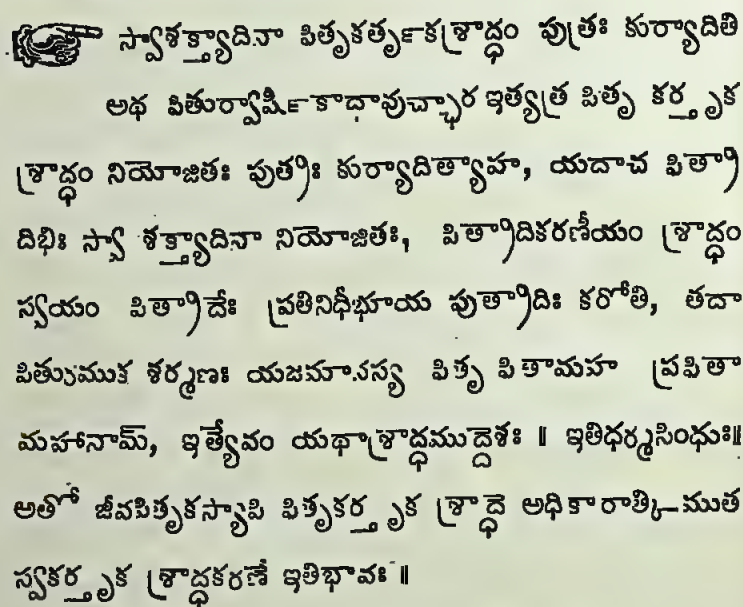 స్వాశక్త్యాదినా పితృకర్తృక శ్రాద్ధం పుత్రః కుర్యాదితి
అథ పితుర్వార్షికాదావుచ్ఛార ఇత్యత్ర పితృ కర్తృక
శ్రాద్ధం నియోజితః పుత్రః కుర్యాదిత్యాహ, యదాచ పిత్రా
దిభిః స్వా శక్త్యాదినా నియోజితః, పిత్రాదికరణీయం శ్రాద్ధం
స్వయం పిత్రాదేః ప్రతినిధీభూయ పుత్రాదిః కరోతి, తదా
పితుముక శర్మణః యజమానస్య పితృ పితామహ ప్రపితా
మహానామ్, ఇత్యేవం యథాశ్రాద్ధముద్దేశః ॥ ఇతిధర్మసింధుః॥
అతో జీవపితృకస్యాపి పితృకర్తృక శ్రాద్ధే అధికారాత్కిముత
స్వకర్తృక శ్రాద్ధకరణే ఇతిభావః ॥